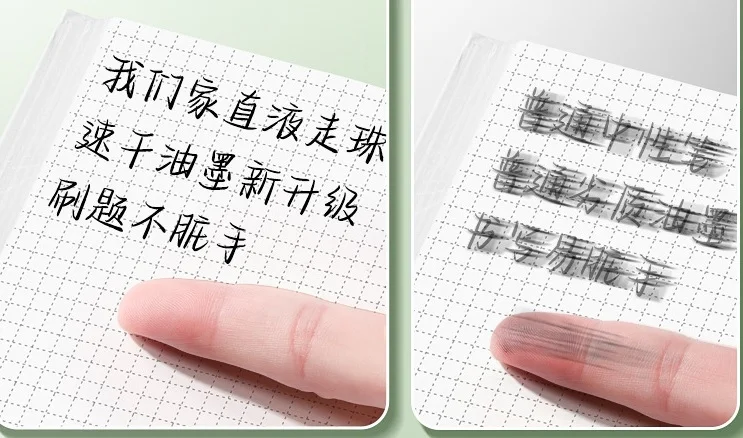 我们家直液走珠
速干油墨新升级
刷题不脏手
普通中性笔
普通劣质油墨
书写易脏手